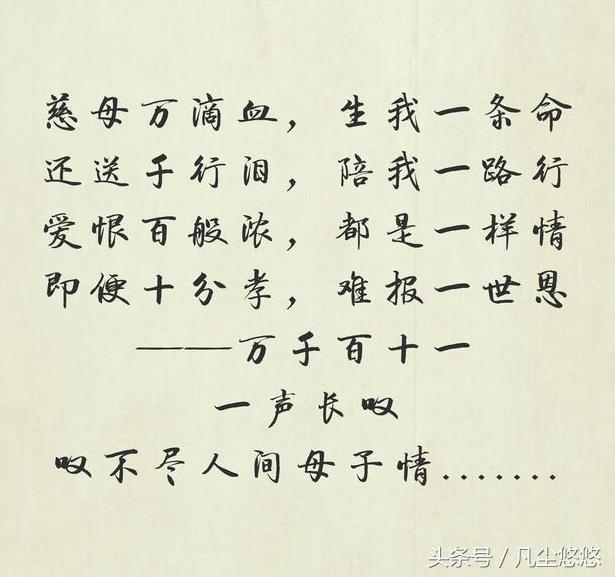 慈母万滴血，生我一条命
还送千行泪，陪我一路行
爱恨百般浓，都是一样情
即便十分孝，难报一世恩
——万千百十一
一声长叹
叹不尽人间母子情.......
头条号 / 凡尘悠悠